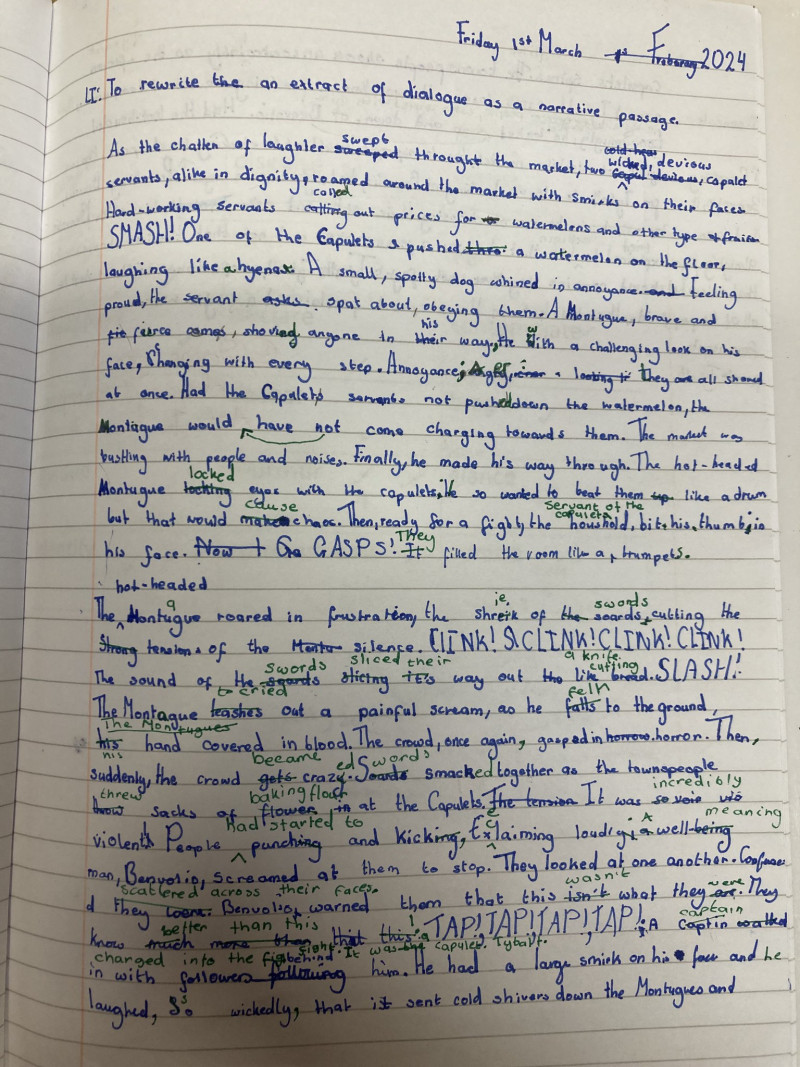 Friday 1st March 2024
LI: To rewrite the an extract of dialogue as a narrative passage.
As the chatter of laughter swept throught the market, two wicked, devious, capulet
servants, alike in dignity, roamed around the market with smirks on their faces
Hard-working servants called out prices for watermelons and other type of fruits
SMASH! One of the Capulets pushed a watermelon on the floor,
laughing like a hyena. A small, spotty dog whined in annoyance. Feeling
proud, the servant spat about, obeying them. A Montugue, brave and
fierce comes, shoving anyone in his way. He with a challenging look on his
face, changing with every step. Annoyance, they all showed
at once. Had the Capulets servants not pushed down the watermelon, the
Montague would have not come charging towards them. The market was
bustling with people and noises. Finally, he made his way through. The hot-headed
Montugue locked eyes with the capulets, He so wanted to beat them like a drum
but that would cause chaos. Then, ready for a fight, the servant of the capulets houshold, bit his thumb, in
his face. GASPS! They filled the room like a trumpets.
The hot-headed Montague roared in frustration, the shreik of the swords cutting the
tensions of the silence. CLINK! CLINK! CLINK! CLINK!
The sound of the swords sliced their way out like a knife cutting bread. SLASH!
The Montague cried out a painful scream, as he fell to the ground,
his hand covered in blood. The crowd, once again, gasped in horror. Then,
suddenly, the crowd became crazy. Swords smacked together as the townspeople
threw sacks of baking flour at the Capulets. It was incredibly
violent. People had started to punching and kicking, Exclaiming loudly, A well-meaning
man, Benvolio, screamed at them to stop. They looked at one another. Confuse
d they scattered across their faces. Benvolio, warned them that this wasn't what they were. They
know better than this! TAP! TAP! TAP! TAP! A captain
charged into the fight. It was capulet Tybalt.
in with followers behind him. He had a large smirk on his face and he
laughed, so wickedly, that it sent cold shivers down the Montugues and